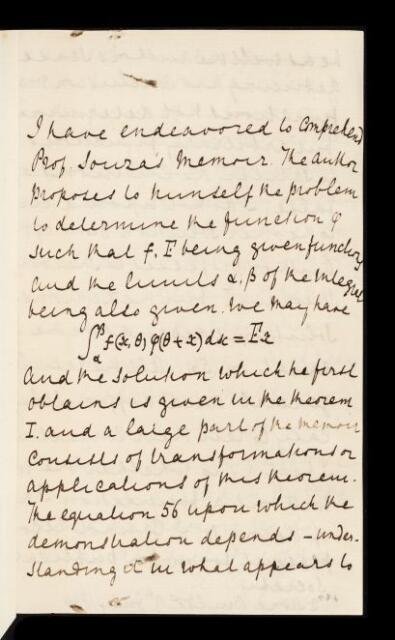 I have endeavored to Comprehend
Prof. Souza's Memoir. The author
proposes to himself the problem
to determine the function φ
such that f, F being given functions
and the limits α, β of the Integral
being also given. We may have
∫_α^β f(x,θ) φ(θ+x)dx = Fx
And the solution which he first
obtains is given in the theorem
I. and a large part of the memoir
consists of transformations or
applications of this theorem.
The equation 56 upon which the
demonstration depends – under-
standing it in what appears to